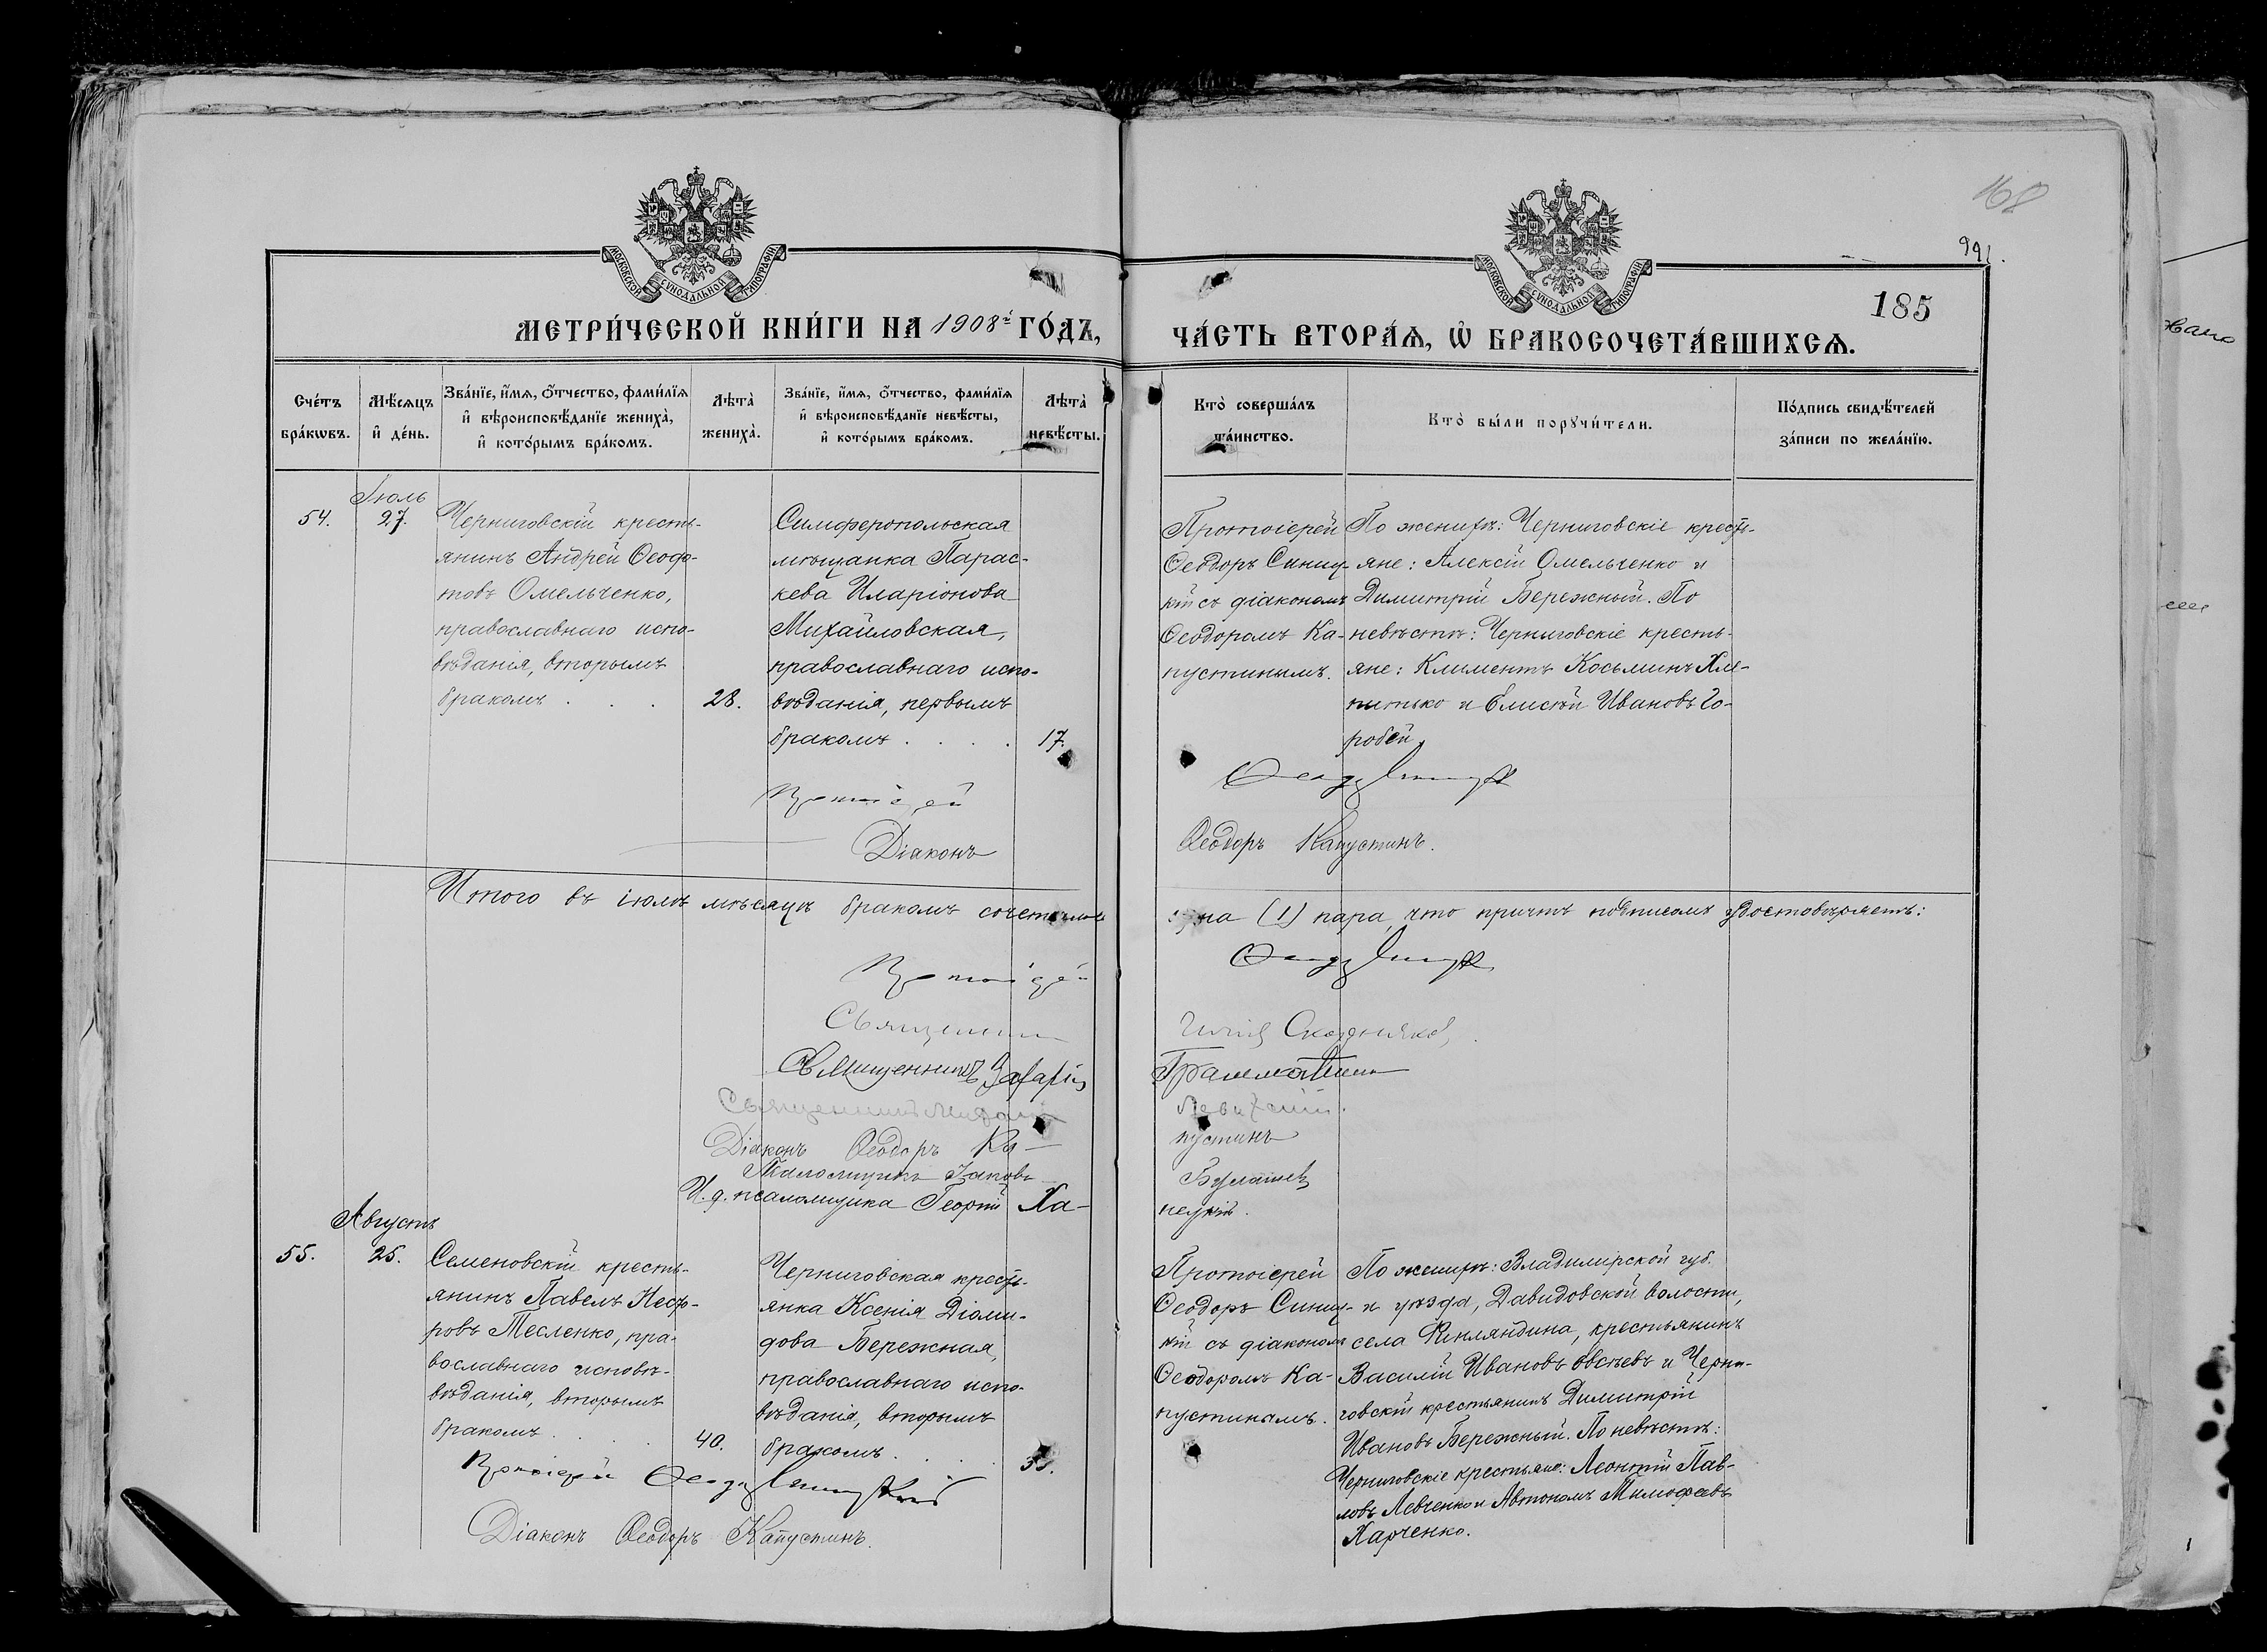 168
991.
185
МОСКОВСКОЙ СѴНОДАЛЬНОЙ ТИПОГРАФІИ
МОСКОВСКОЙ СѴНОДАЛЬНОЙ ТИПОГРАФІИ
МЕТРИ́ЧЕСКОЙ КНИ́ГИ НА 1908й ГО́ДЪ,
ЧА́СТЬ ВТОРА́Ѧ, Ѡ҆ БРАКОСОЧЕТА́ВШИХСѦ.
Сче́тъ бра́кѡвъ.
Мѣ́сѧцъ и҆ де́нь.
Зва́нїе, и҆́мѧ, ѻ҆́тчество, фами́лїѧ и҆ вѣроисповѣ́данїе жениха̀, и҆ кото́рымъ бра́комъ.
Лѣта̀ жениха̀.
Зва́нїе, и҆́мѧ, ѻ҆́тчество, фами́лїѧ и҆ вѣроисповѣ́данїе невѣ́сты, и҆ кото́рымъ бра́комъ.
Лѣта̀ невѣ́сты.
Кто̀ соверша́лъ та́инство.
Кто̀ бы́ли порꙋчи́тели.
По́дпись свидѣ́телей за́писи по жела́нїю.
Іюль
54.
27.
Черниговскій кресть-
янинъ Андрей Ѳеодо-
товъ Омельченко,
православнаго испо-
вѣданія, вторымъ
бракомъ . . .
28.
Симферопольская
мѣщанка Парас-
кева Иларіонова
Михайловская,
православнаго испо-
вѣданія, первымъ
бракомъ . . . .
17.
Протоіерей
Ѳеодоръ Синиц-
кій съ діакономъ
Ѳеодоромъ Ка-
пустинымъ.
По женихѣ: Черниговскіе кресть-
яне: Алексій Омельченко и
Димитрій Бережный. По
невѣстѣ: Черниговскіе кресть-
яне: Климентъ Косьминъ Хме-
питько и Елисей Ивановъ Го-
робей.
Протоіерей
Діаконъ Ѳеодоръ Капустинъ.
Итого въ іюлѣ мѣсяцѣ бракомъ сочеталось одна (1) пара, что причтъ подписомъ удостовѣряетъ:
Протоіерей
Священникъ
Священникъ Захарій
Священникъ
Діаконъ Ѳеодоръ Ка-
пустинъ
Псаломщикъ Іаковъ
И. д. псаломщика Георгій Ха-
Августъ
55.
25.
Семеновскій кресть-
янинъ Павелъ Несто-
ровъ Месленко, пра-
вославнаго исповѣ-
вѣданія, вторымъ
бракомъ . . .
40.
Черниговская кресть-
янка Ксенія Діоми-
дова Бережная,
православнаго испо-
вѣданія, вторымъ
бракомъ . . . .
Протоіерей
Ѳеодоръ Синиц-
кій съ діакономъ
Ѳеодоромъ Ка-
пустинымъ.
По женихѣ: Владимірской губ.
и уѣзда, Давидовской волости,
села Финляндина, крестьянинъ
Василій Ивановъ Овсѣевъ и Черни-
говскій крестьянинъ Димитрій
Ивановъ Бережный. По невѣстѣ:
Черниговскіе крестьяне: Леонтій Пав-
ловъ Левченко и Автономъ Тимофеевъ
Харченко.
Протоіерей
Діаконъ Ѳеодоръ Капустинъ.